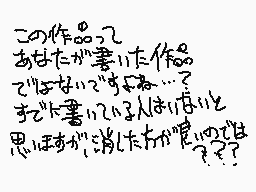 この作品って
あなたが書いた作品
ではないですよね…?
すでに書いている人はいないと
思いますが、消した方が良いのでは
???